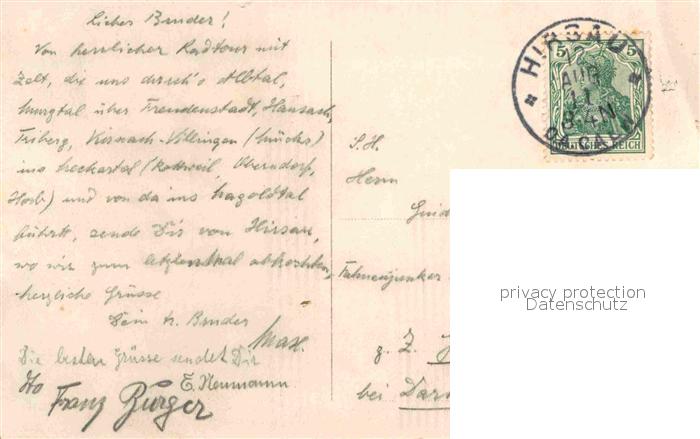 Lieber Bruder!
Von herrlicher Radtour mit
Zelt, die uns durch's Albtal,
Murgtal über Freudenstadt, Hausach,
Triberg, Kirnach-Villingen (
ins Neckartal (Rottweil, Oberndorf,
Horb) und von da ins Nagoldtal
führt, sende Dir von Hirsau,
wo wir zum letztenmal abkochten,
herzliche Grüsse
Dein tr. Bruder
Max.
Die besten Grüsse sendet Dir
E. Neumann
Franz Burger
S.H.
Herrn
Guid
Fahnenjunker
z. Z.
bei Dar
HIRSAU
AUG
11
8-4N
OA CALW
5 5
DEUTSCHES REICH
privacy protection
Datenschutz